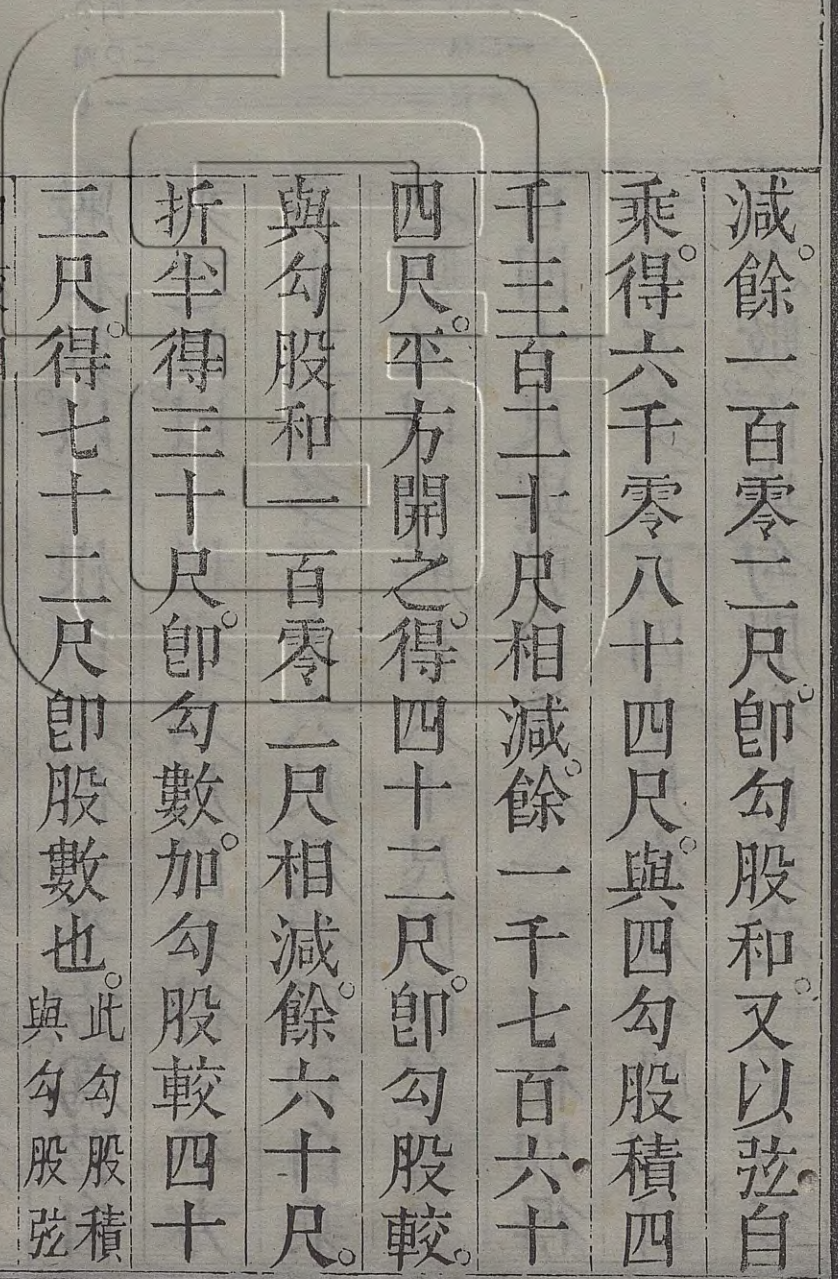 減。餘一百零二尺。卽勾股和。又以弦自
乘。得六千零八十四尺。與四勾股積四
千三百二十尺相減。餘一千七百六十
四尺。平方開之。得四十二尺。卽勾股較。
與勾股和一百零二尺相減。餘六十尺。
折半得三十尺。卽勾數。加勾股較四十
二尺。得七十二尺卽股數也。此勾股積
與勾股弦